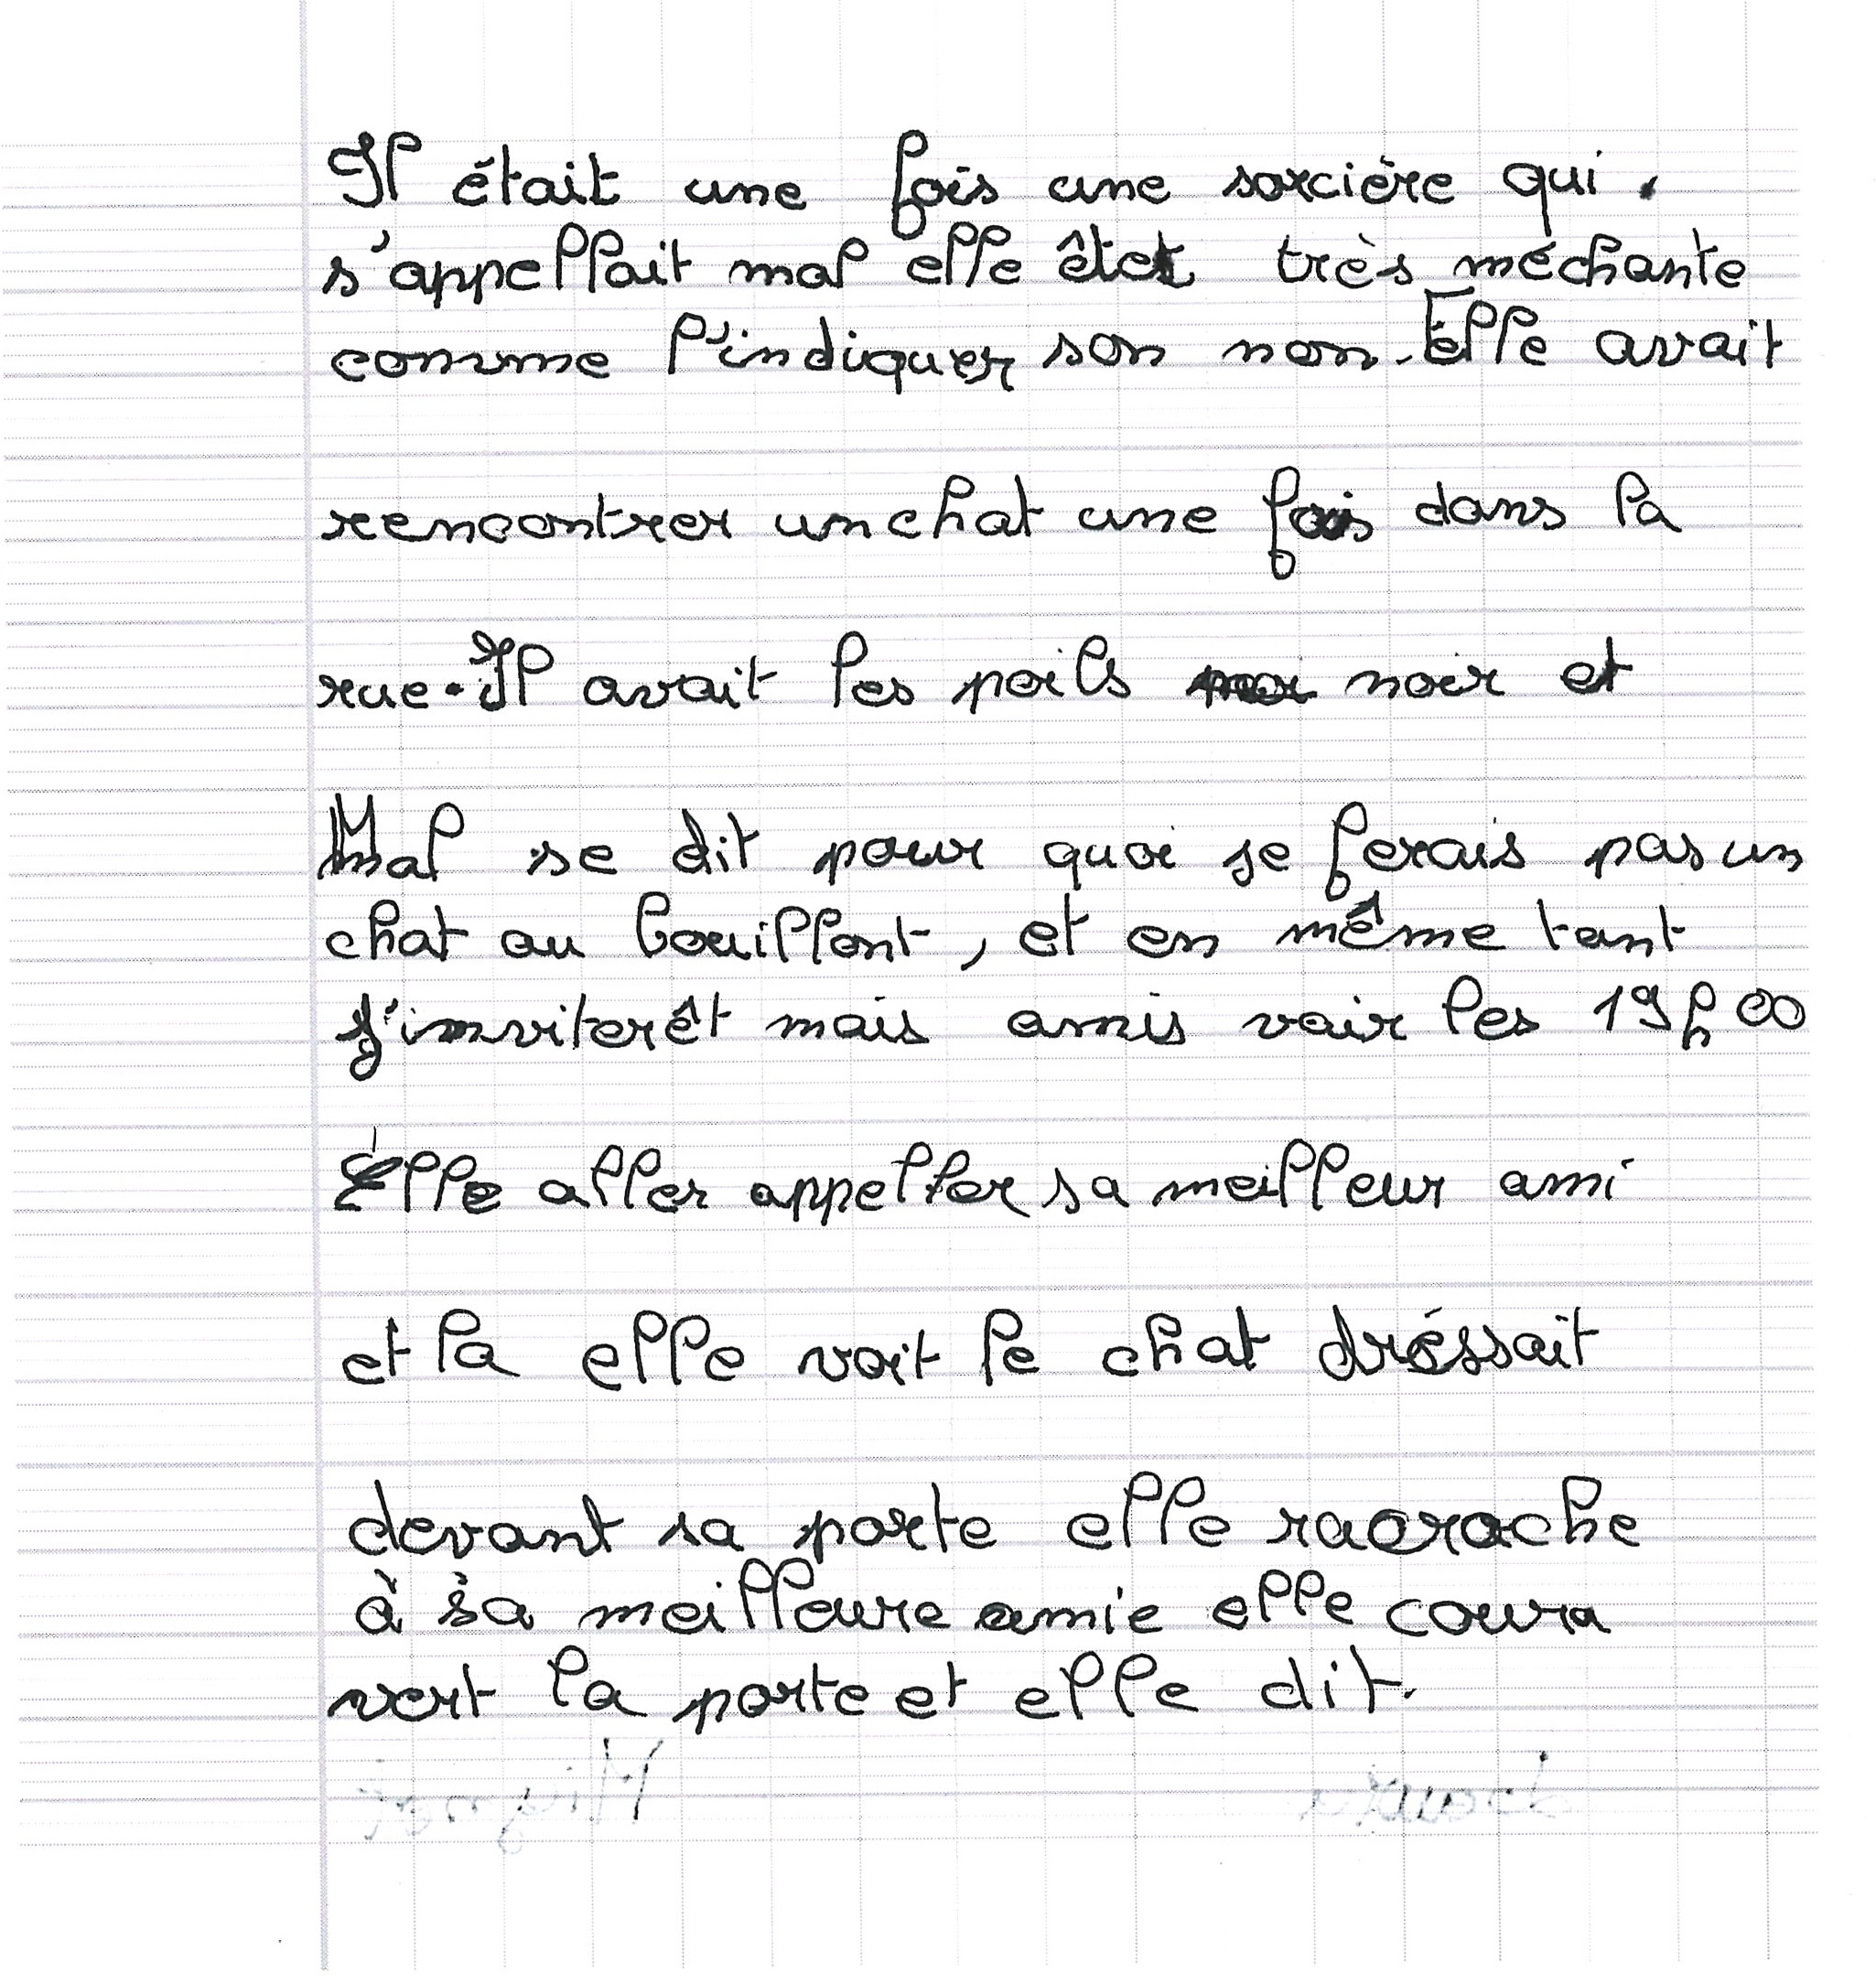 Il était une fois une sorcière qui.
s'appellait mal elle êtet très méchante
comme l'indiquer son non. Elle avait
rencontrer un chat une fois dans la
rue. Il avait les poils noir et
Mal se dit pour quoi je ferais pas un
chat au bouillont, et en même tant
j'inviterêt mais amis voir les 19h00
Elle aller appeller sa meilleur ami
et la elle voit le chat dréssait
devant sa porte elle racroche
à sa meilleure amie elle coura
vert la porte et elle dit.